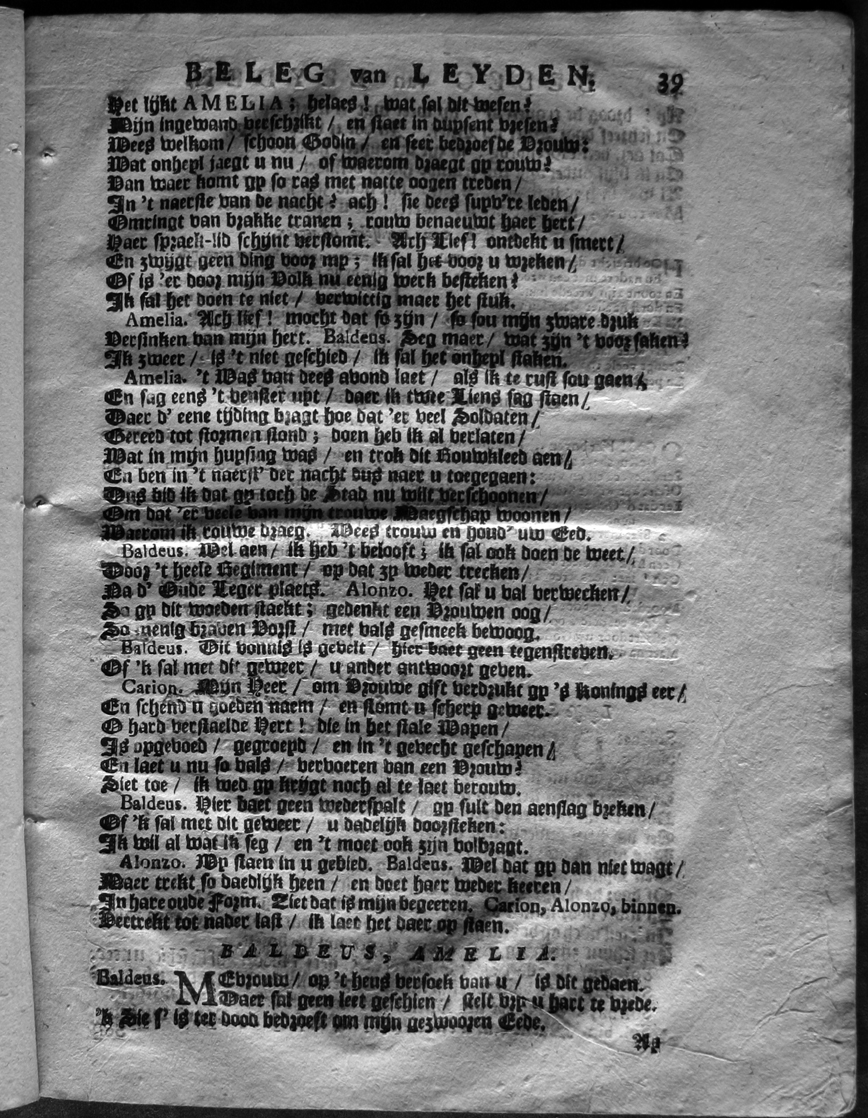 BELEG van LEYDEN. 39
Het lijkt AMELIA; helaes! wat sal dit wesen?
Mijn ingewand verschrikt / en staet in duysent vresen?
Wees welkom / schoon Godin / en seer bedroefde Vrouw:
Wat onheyl jaegt u nu / of waerom draegt gy rouw?
Van waer komt gy so ras met natte oogen treden /
In 't naerste van de nacht? ach! sie dees suyv're leden /
Omringt van brakke tranen; rouw benaeuwt haer hert /
Haer spraek-lid schijnt verstomt. Ach Lief! ontdekt u smert /
En zwijgt geen ding voor my; ik sal het voor u wreken /
Of is 'er door mijn Volk nu eenig werk besteken?
Ik sal het doen te niet / verwittig maer het stuk.
Amelia. Ach lief! mocht dat so zijn / so sou mijn zware druk
Versinken van mijn hert. Baldeus. Seg maer / wat zijn 't voor saken?
Ik zweer / is 't niet geschied / ik sal het onheyl staken.
Amelia. 't Was van dees avond laet / als ik te rust sou gaen /
En sag eens 't venster uyt / daer ik twee Liens sag staen /
Daer d' eene tijding bragt hoe dat 'er veel Soldaten /
Gereed tot stormen stond; doen heb ik al verlaten /
Wat in mijn huysing was / en trok dit Rouwkleed aen /
En ben in 't naerst' der nacht dus naer u toegegaen:
Dus bid ik dat gy toch de Stad nu wilt verschoonen /
Om dat 'er veele van mijn trouwe Maegschap woonen /
Waerom ik rouwe draeg. Wees trouw en houd' uw Eed.
Baldeus. Wel aen / ik heb 't belooft; ik sal ook doen de weet /
Door 't heele Regiment / op dat zy weder trecken /
Na d' Oude Leger plaets. Alonzo. Het sal u val verwecken /
So gy dit woeden staekt; gedenkt een Vrouwen oog /
So menig braven Vorst / met vals gesmeek bewoog.
Baldeus. Dit vonnis is gevelt / hier baet geen tegenstreven.
Of 'k sal met dit geweer / u ander antwoort geven.
Carion. Mijn Heer / om Vrouwe gift verdrukt gy 's Konings eer /
En schend u goeden naem / en stomt u scherp geweer.
O hard verstaelde Hert! die in het stale Wapen /
Is opgevoed / gegroeyd / en in 't gevecht geschapen /
En laet u nu so vals / vervoeren van een Vrouw?
Siet toe / ik wed gy krijgt noch al te laet berouw.
Baldeus. Hier baet geen wederspalt / gy sult den aenslag breken /
Of 'k sal met dit geweer / u dadelijk doorsteken:
Ik wil al wat ik seg / en 't moet ook zijn volbragt.
Alonzo. Wy staen in u gebied. Baldeus. Wel dat gy dan niet wagt /
Maer trekt so daedlijk heen / en doet haer weder keeren /
In hare oude Form. Ziet dat is mijn begeeren. Carion, Alonzo, binnen.
Vertrekt tot nader last / ik laet het daer op staen.
BALDEUS, AMELIA.
Baldeus. MEvrouw / op 't heus versoek van u / is dit gedaen.
Daer sal geen leet geschien / stelt vry u hart te vrede.
'k Sie s' is ter dood bedroeft om mijn gezwooren Eede.